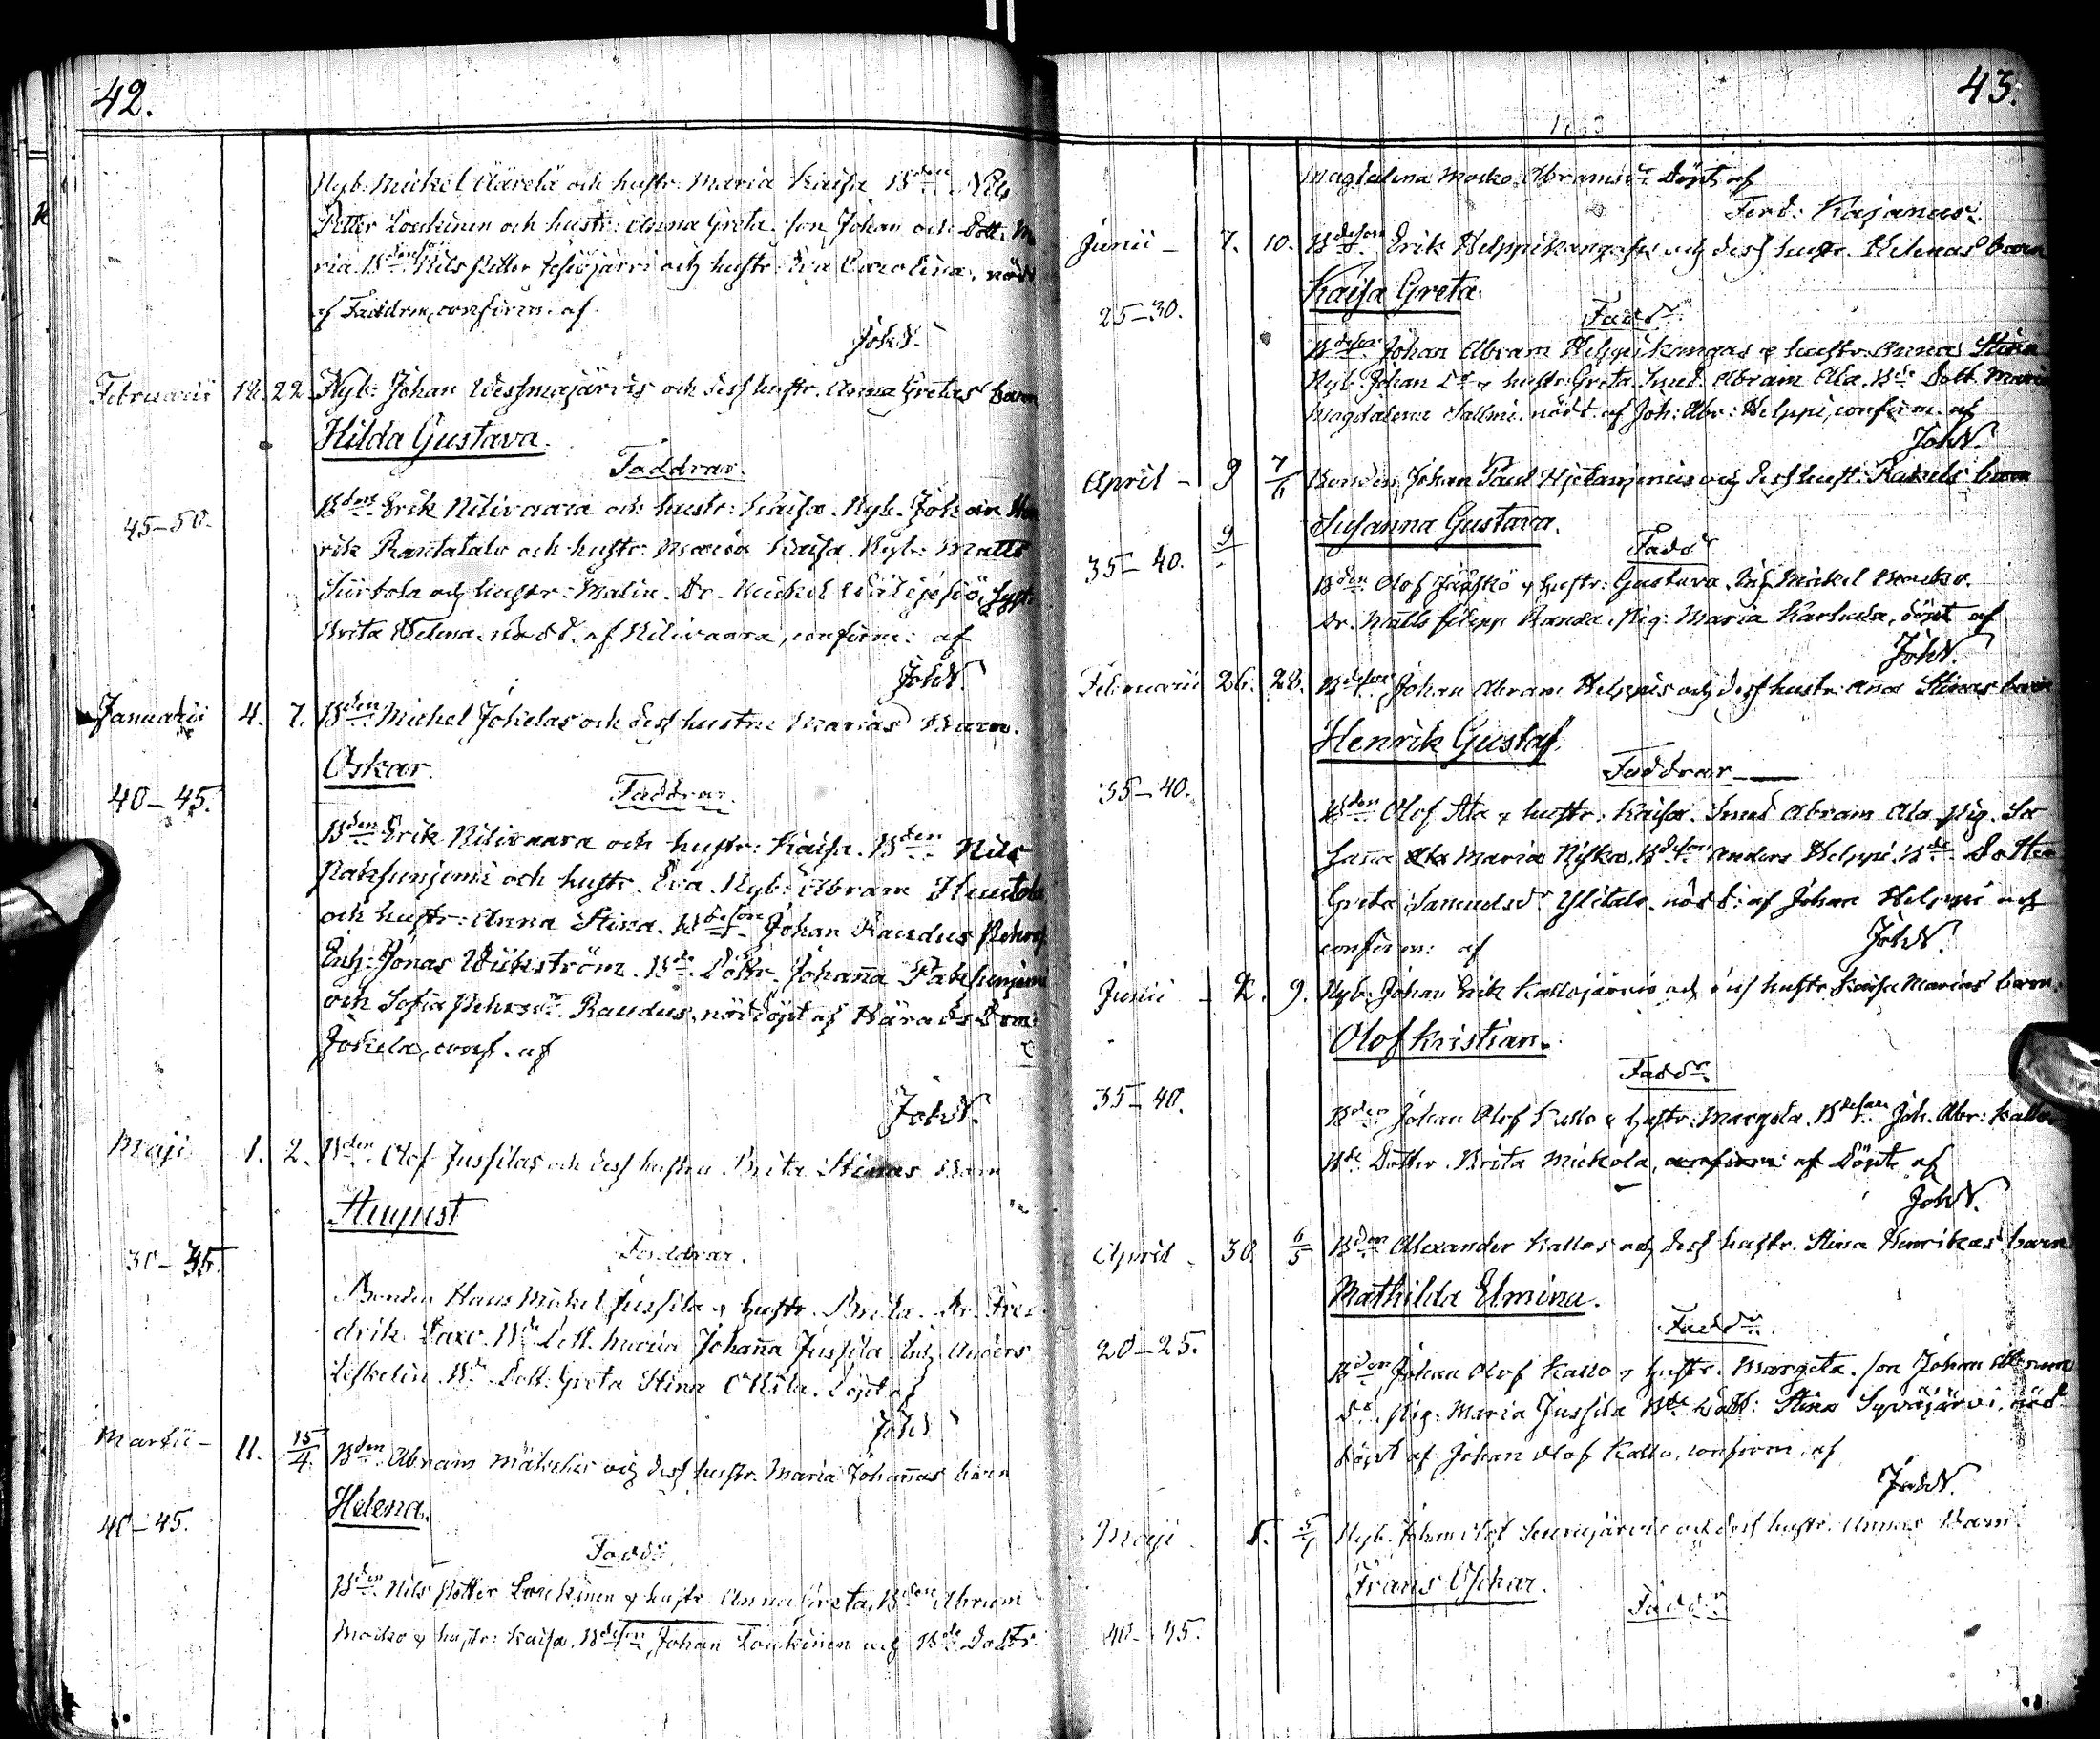 42.
Nyb: Mickel Äärelä och hustr: Maria Kaisa Bden Nils
Petter Loukinen och hustr: Anna Greta. son Johan och Dott. Ma
ria Bdeson Nils Petter och hustr: Eva Carolina, nödd
af Faddren, confirm. af
JohN.
Februarii 18. 22. Nyb: Johan Wessmajärvis och dess hustr. Anna Gretas barn
Hilda Gustava.
Faddrar.
45–50.
Bden Erik Nilivaara och hustr: Kaisa. Nyb. Johan Hen
rik Rantatalo och hustr: Maria Kaisa. Nyb: Matts
Siirtola och hustr: Malin. Dr. Mickel
Brita Helena. nödd. af Nilivaara, confirm: af
JohN.
Januarii 4. 7. Bden Michel Jokelas och dess hustru Marias Barn.
Oskar.
Faddrar.
40–45.
Bden Erik Nilivaara och hustr: Kaisa. Bden Nils
Paksunjemi och hustr. Eva. Nyb: Abram
och hustr: Anna Stina. Bdeson Johan Raudus
Enh: Jonas Wikström. Bde Dottr. Johanna Paksunjemi
och Sofia Pehrsdr. Raudus, nöddöpt af Härads Dom:
Jokela, conf. af
JohN.
Maji 1. 2. Bden Olof Jussilas och dess hustru Brita Stinas Barn
August
Faddrar.
30–35.
Bonden Hans Mickel Jussila & hustr. Brita. Dr. Fre
drik Laxo. Bde Dott. Maria Johanna Jussila. Enh. Anders
Bde Dott: Greta Stina Ollila. Döpt af
JohN
Martii – 11. 15/4. Bden Abram Mäkelis och dess hustr. Maria Johannas barn
Helena.
Faddr.
40–45.
Bden Nils Petter Loukinen & hustr Anna Greta, Bden Abram
Mosko & hustr: Kaisa. Bdeson Johan Loukinen och Bde Dottr.
43.
Magdalena Mosko Abramsdr Döpt af
Ferd: Kajanus.
Junii – 7. 10. Bdeson Erik Helppikangas och dess hustr. Helenas barn
Kaisa Greta.
Faddr
25–30.
Bdeson Johan Abram Helppikangas & hustr. Anna Stina
Nyb. Johan Do & hustr: Greta. Smed. Abram Ala. Bde Dott. Maria
Magdalena Sallmi. nödd. af Joh: Abr: Helppi, confirm. af
JohN.
April – 9 7/6 Bonden Johan Paul Hjetanjemis och dess hustr: Rakels barn
Susanna Gustava.
9
Faddr
35–40.
Bden Olof Jääskö & hustr: Gustava. Enh. Mickel
Dr. Matts Filipp Randa. Pig: Maria Karhula, döpt af
JohN.
Februarii 26. 28. Bdeson Johan Abram Helppis och dess hustr. Anna Stinas barn
Henrik Gustaf.
Faddrar
35–40.
Bden Olof Ala & hustr: Kaisa. Smed Abram Ala. Pig. Su
sanna Maria Niska. Bdeson Anders Helppi. Bde Dotter
Greta Samuelsdr Ylitalo. nödd: af Johan Helppi och
confirm: af
JohN.
Junii – 2. 9. Nyb. Johan Erik Kallojärvis och dess hustr Kaisa Marias barn.
Olof Kristian.
Faddr.
35–40.
Bden Johan Olof Kallo & hustr: Margeta. Bdeson Joh. Abr: Kallo.
Bde Dotter. Brita Mickola, confirm: af Döpt af
JohN.
April – 30. 6/5 Bden Alexander Kallos och dess hustr. Stina Henrikas barn
Mathilda Elmina.
Faddr.
20–25.
Bden Johan Olof Kallo & hustr. Margeta. son Johan Abram
Do. Pig: Maria Jussila Bde Dott: Stina Syväjärvi, nöd
döpt af Johan Olof Kallo, confirm. af
JohN.
Maji 5. Nyb. Johan Olof och dess hustr. Annas Barn
Frans Oskar.
Faddr
40–45.